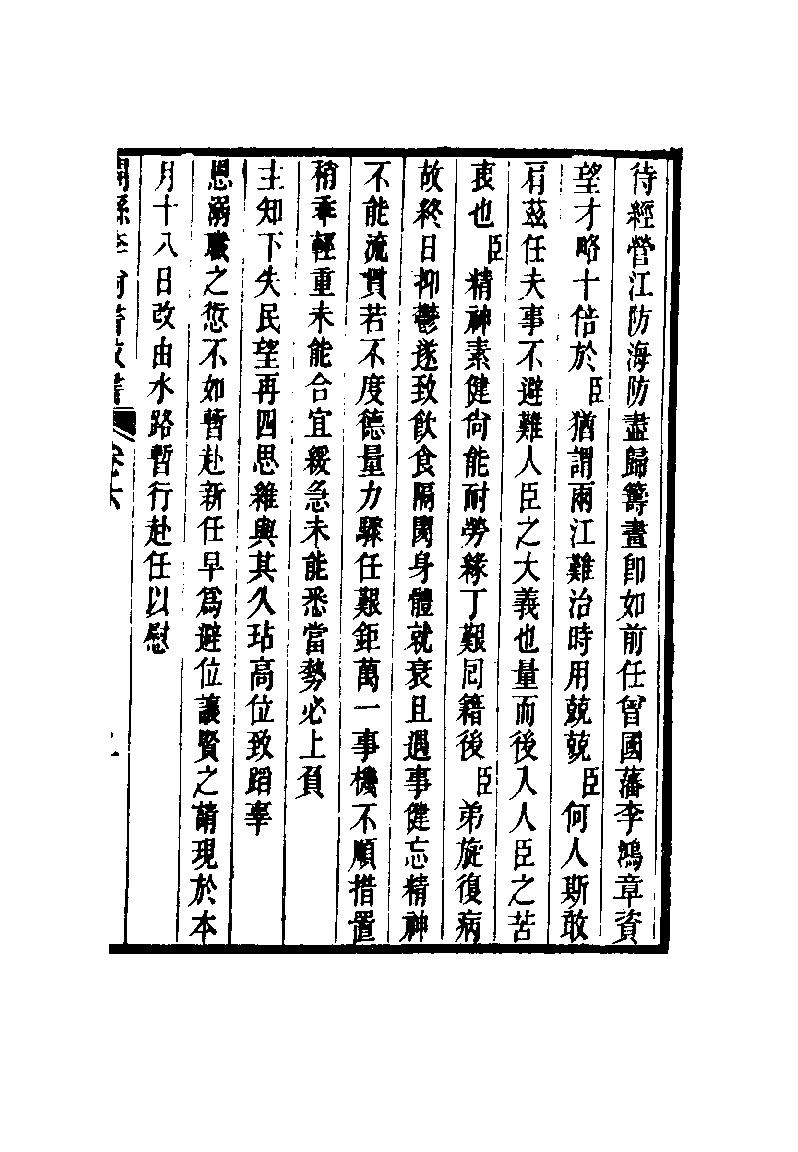 待經營江防海防盡歸籌畫卽如前任曾國藩李鴻章資
望才略十倍於臣猶謂兩江難治時用兢兢臣何人斯敢
肩茲任夫事不避難人臣之大義也量而後入人臣之苦
衷也臣精神素健尙能耐勞緣丁艱囘籍後臣弟旋復病
故終日抑鬱遂致飮食隔閡身體就衰且遇事健忘精神
不能流貫若不度德量力驟任艱鉅萬一事機不順措置
稍乖輕重未能合宜緩急未能悉當勢必上負
主知下失民望再四思維與其久玷高位致蹈辜
恩溺職之愆不如暫赴新任早爲避位讓賢之請現於本
月十八日改由水路暫行赴任以慰
開縣李尙書政書 卷六